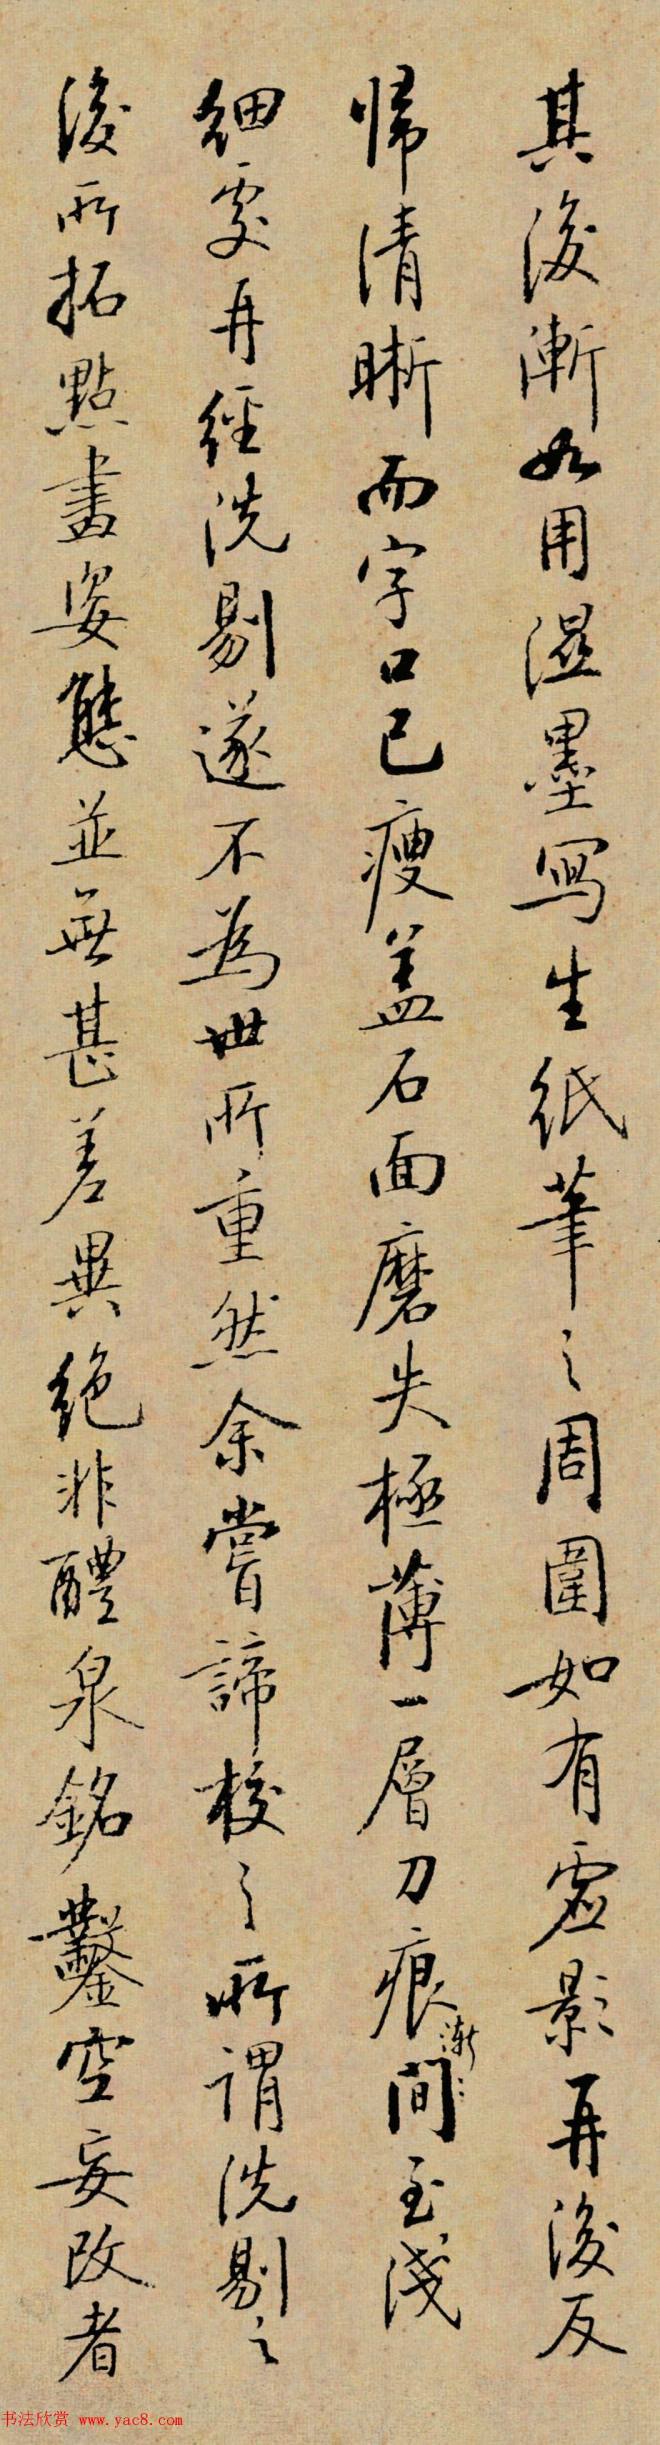 其後漸如用溼墨寫生紙筆之周圍如有虛影再後反
歸清晰而字口已瘦蓋石面磨失極薄一層刀痕間至淺
漸漸
細處再經洗剔遂不為世所重然余嘗諦校之所謂洗剔之
後所拓點畫姿態並無甚差異絕非醴泉銘鑿空妄改者
书法欣赏 www.yac8.com